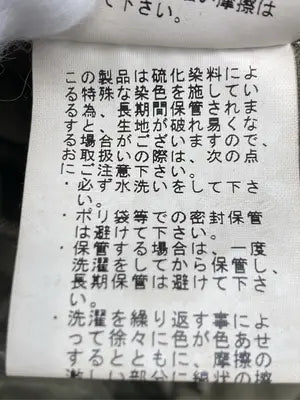 い摩擦は
て下さい。
この製品は硫化染料によ
る特殊な染色を施してい
る為、長期間保管されま
すと、生地が破れ易くな
る場合がございますので、
お取扱いの際は、次の点
にご注意下さい。
・必ず水洗いをして下さ
い。
・ポリ袋等での密封保管
は避けて下さい。
・保管する場合は、一度
洗濯をしてから保管し、
長期保管は避けて下さ
い。
・洗濯を繰り返す事によ
って徐々に色が色あせ
するとともに、摩擦の
激しい部分に線状の擦